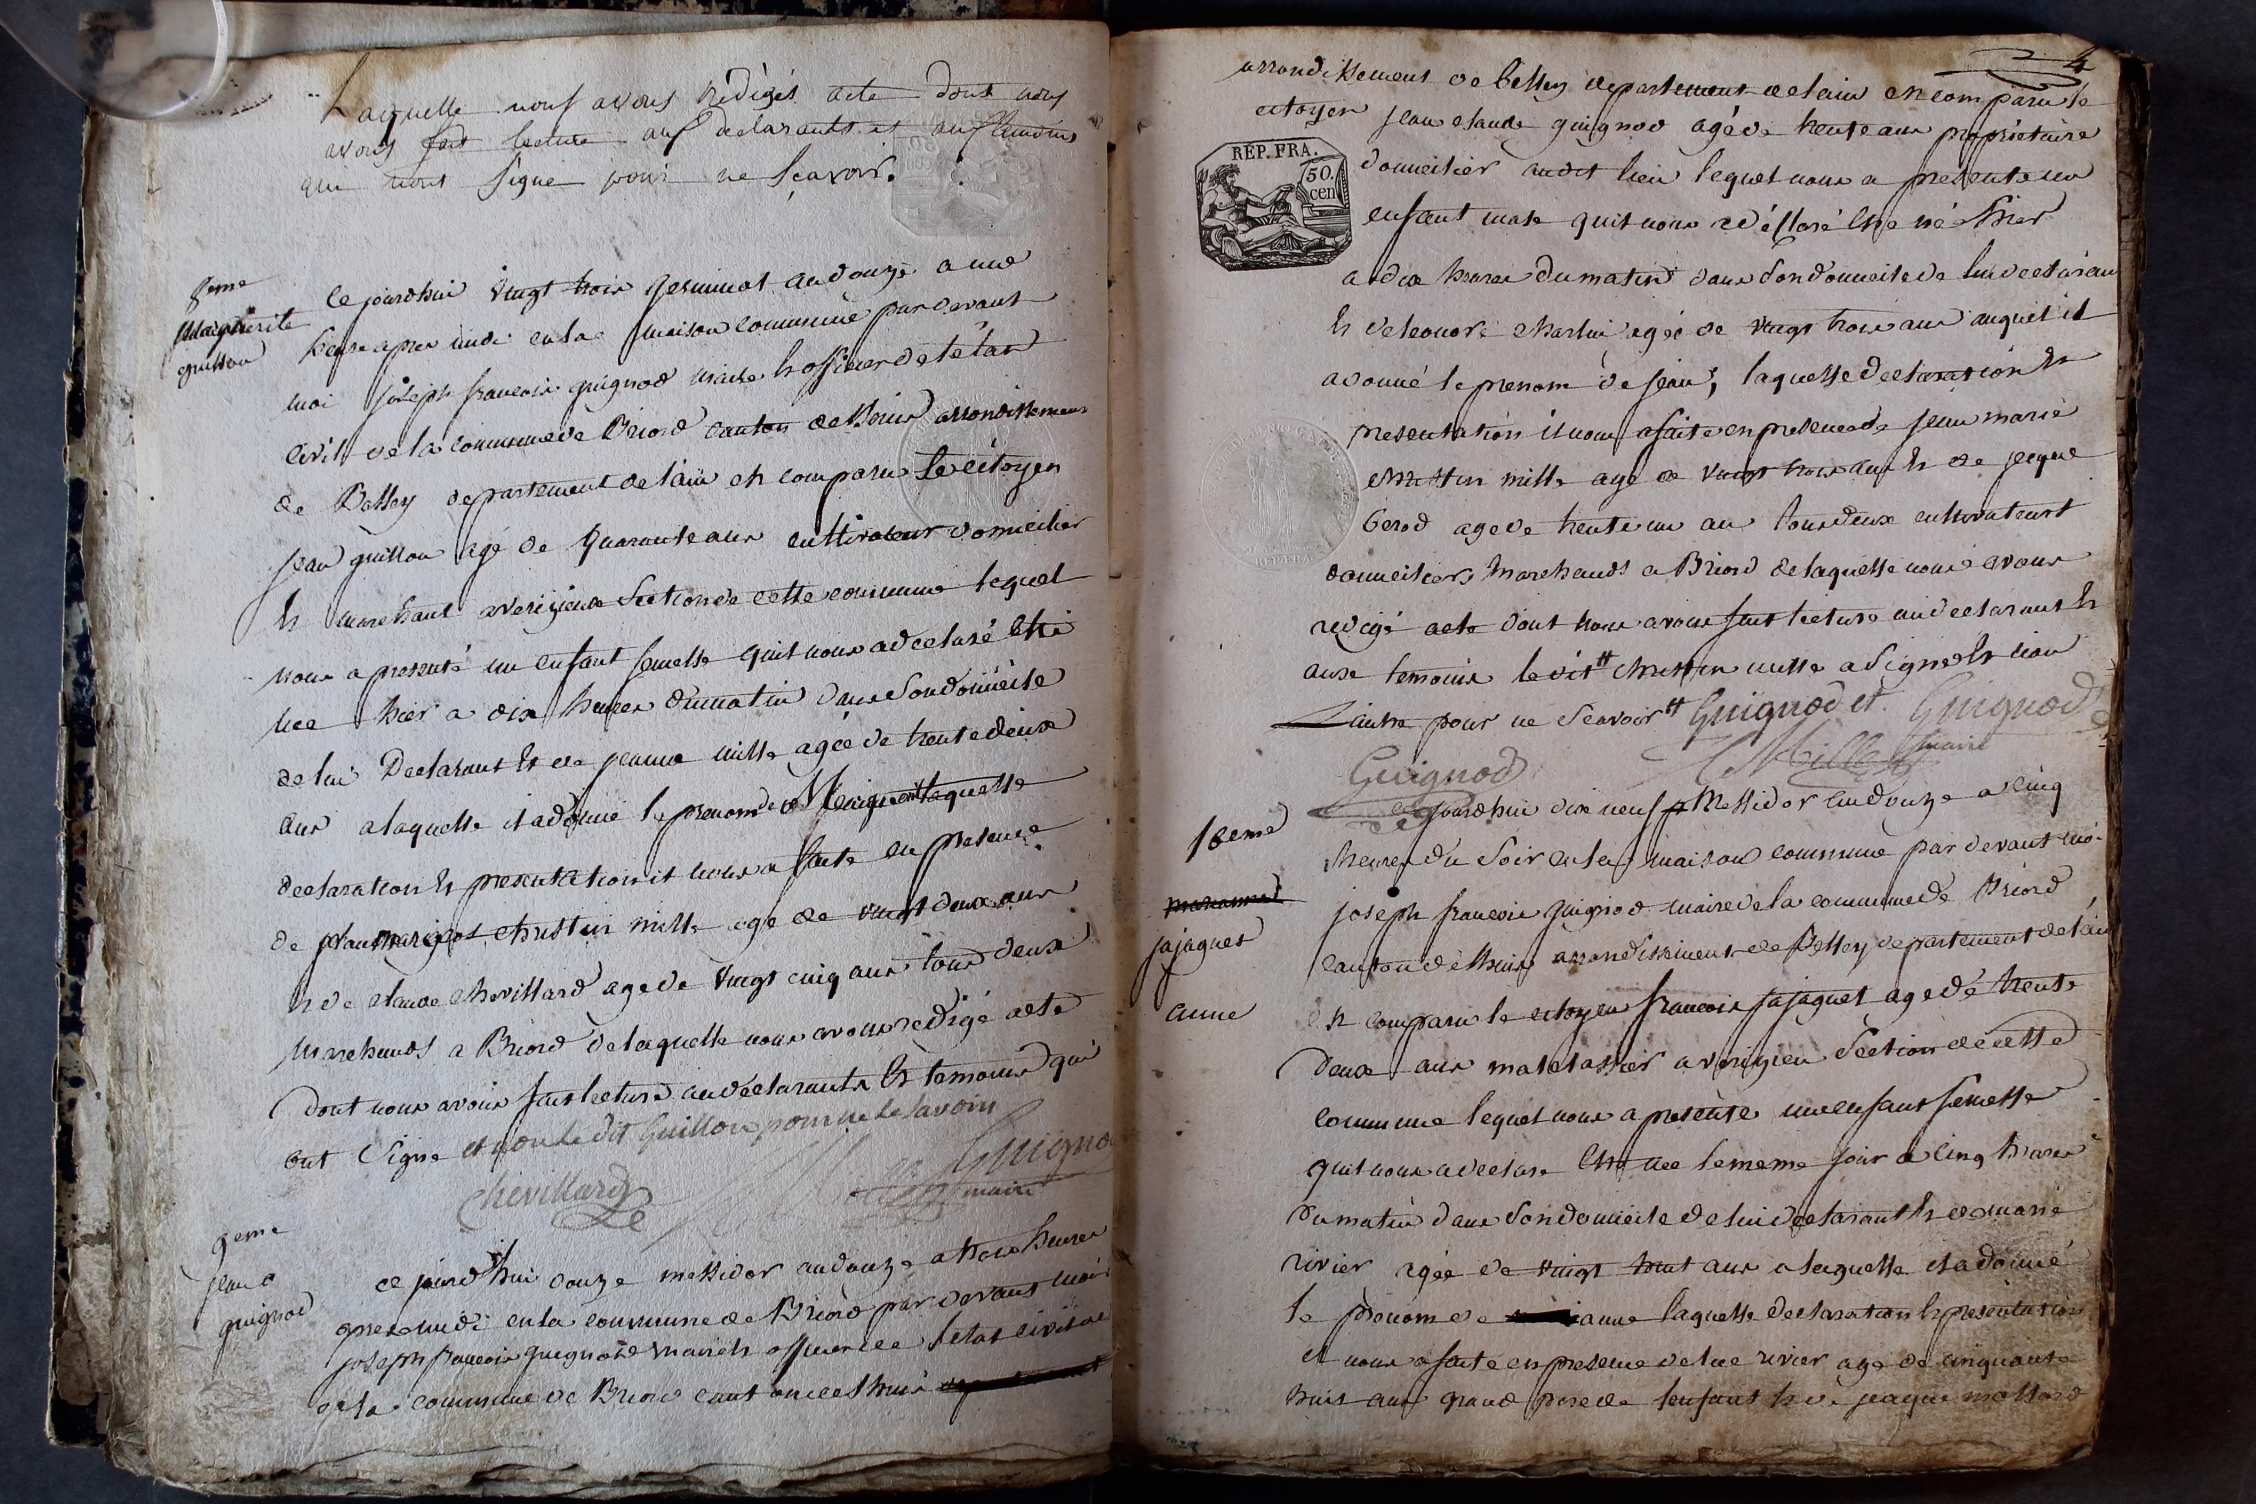 Laquelle nous avons rédigés acte dont nous
avons fait lecture aus declarants et aus temoins
qui n'ont signe pour ne sçavoir.
8eme
Marguerite
guillon
Ce jourdhui vingt trois germinal an douze a une
heure apres midi en la maison commune par devant
moi joseph francois guignod maire et officier de létat
civil de la commune de Briord canton de lhuis arrondissement
de Belley departement de l'ain est comparu le citoyen
jean guillon agé de quarante ans cultivateur domicilier
et marchant a verizieux section de cette commune lequel
nous a presenté un enfant femelle quil nous a declaré etre
née hier a dix heures du matin dans son domicile
de lui Declarant et de jeanne mille agée de trente deux
ans a laquelle il a donné le prenom de Marguerite laquelle
declaration et presentation il nous a faite en presence
de jean marie christin mille age de vingt deux ans
et de claude chevillard age de vingt cinq ans tous deux
marchands a Briord de laquelle nous avons redigé acte
dont nous avons fait lecture au declarants et temoins qui
ont signe et non le dit Guillon pour ne le savoir
chevillard Guignod
maire
9eme
jean
guignod
ce jourd'hui douze messidor an douze a trois heures
apres midi en la commune de Briord par devant moi
joseph francois guignod maire et officier de letat civil de
de la commune de Briord canton de lhuis
4
arrondissement de belley departement de lain est comparu le
citoyen jean claude guignod agé de trente ans proprietaire
REP. FRA.
50.
cen
domicilier audit lieu lequel nous a presente un
enfant male quil nous a déclaré etre né hier
a dix heures du matin dans son domicile de lui declarant
et de leonore charlin agée de vingt trois ans auquel il
a donné le prenom de jean, laquelle declaration et
presentation il nous a faite en presence de jean marie
christin mille agé de vingt trois ans et de jaque
berod age de trente un an tous deux cultivateurs
domiciliers marchands a Briord de laquelle nous avons
redigé acte dont nous avons fait lecture au declarant et
aux temoins le dit christin mille a signe et non
lautre pour ne scavoir Guignod et Guignod
Guignod Mille maire
10eme
jajaguet
anne
ce jourdhui dix neuf Messidor an douze a cinq
heures du soir en la maison commune par devant moi
joseph francois guignod maire de la commune de Briord
canton de lhuis arrondissement de Belley departement de lain
est comparu le citoyen francois jajaguet age de trente
deux ans matelassier a verizieu section de cette
commune lequel nous a presente une enfant femelle
quil nous a declare etre née le meme jour a cinq heures
du matin dans son domicile de lui declarant et de marie
rivier agée de vingt huit ans a laquelle il a donné
le prenom de anne laquelle declaration et presentation
il nous a faite en presence de luc rivier age de cinquante
huit ans grand pere de lenfant et de jaque mollard